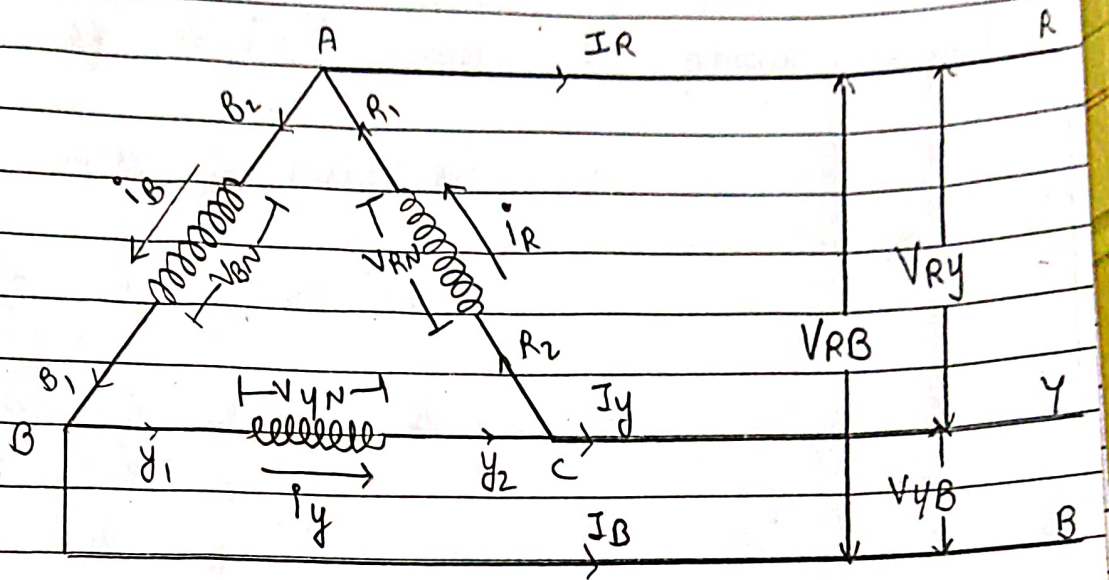 A
IR
R
B2
R1
iB
iR
VBN
VRN
VRY
VRB
R2
B1
VYN
Iy
Y
B
y1
y2
C
iy
VYB
IB
B